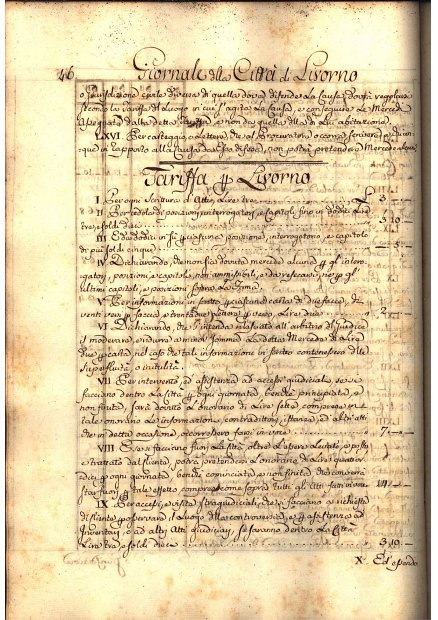 46 Giornale delle Città di Livorno
o Jurisdizione tale diversa di quella dova difende la Causa, dovrà regolarsi
secondo la Tariffa del Luogo in cui s'agita la Causa, e conseguire la Mercede
assegnata dalla detta Tariffa, e non da quella della di Lui abitazione.
LXVI. Per carteggio, o Lettere, che al Procuratore occorra scrivere per
in rapporto alla Causa da esso difesa, non potrà pretendere Mercede alcuna
Tariffa per Livorno
I. Per ogni Scrittura di Atti, Lire tre £ 3 . —
II. Per cedola di posizioni, interrogatorj, e Capitoli fino in dodici, Lire
tre, e soldi dieci " 3 . 10 . —
III. E da dodici in su per ciascuna posizione, interrogatorio, e capitolo
di più soldi cinque " — . 5 . —
IV. Dichiarando, che non sia dovuta mercede alcuna per gl'interro-
gatorj, posizioni, e capitoli, non ammissibili, e da rescarsi, nè per gl'
ultimi capitoli, e posizioni sopra la fama.
V. Per informazioni in scritto per ciascuna carta di due facce, di
venti versi per faccia, e trentadue lettere per verso, Lire due " 2 . —
VI. Dichiarando, che s'intenda rilasciato all'arbitrio del Giudice
il moderare, e ridurre a minor somma la detta Mercede di Lire
due per carta nel caso che tal informazione in scritto contenesse delle
superfluità, o inutilità.
VII. Per intervento, ed assistenza ad accessi giudiciali, se si
facciano dentro la Città per ogni giornata, benchè principiata, e
non finita, sarà dovuto l'onorario di Lire sette, comprese in
tale onorario le informazioni, contradittorj, istanze, ed altri atti
che in detta occasione, occorresse farsi in voce " 7 . —
VIII. Se si faciano fuori la Città, oltre all'essere levato, e posto
e trattato dal cliente, potrà pretendere l'onorario di Lire quattor-
dici per ogni giornata, benchè cominciata, e non finita, che dovesse
star fuori per tale effetto comprese come sopra tutti gli Atti fatti in voce " 14 . —
IX. Per accessi, e visite stragiudiciali, che si facciano a richiesta
di cliente per osservare il Luogo della controversia, e per assistenza a
Inventarj, o ad altri Atti giudiciarj, se saranno dentro la Città
Lire tre, e soldi dieci " 3 . 10 . —
X. Ed essendo